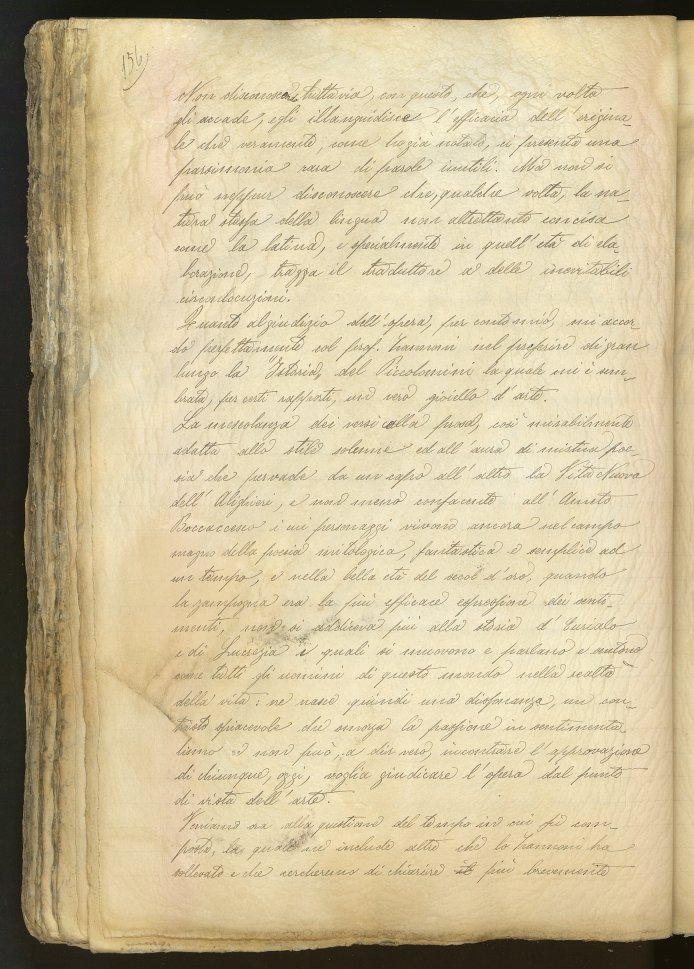 156
Non disconosce tuttavia, con questo, che, ogni volta
gli accade, egli illanguidisce l'efficacia dell'origina-
le che veramente, come hagià notato, ci presenta una
parsimonia rara di parole inutili. Ma non si
può neppur disconoscere che, qualche volta, la na-
tura stessa della lingua non altrettanto concisa
come la latina, e specialmente in quell'età di ela-
borazione, trazza il traduttore a delle inevitabili
circonlocuzioni.
Quanto al giudizio dell'opera, per conto mio, mi accor-
do perfettamente col prof. Zannoni nel preferire di gran
lunga la "Istoria, del Piccolomini la quale mi è sem-
brata, per certi rapporti, un vero gioiello d'arte.
La mescolanza dei versi alla prosa, così mirabilmente
adatta allo stile solenne ed all'aura di mistica poe-
sia che pervade da un capo all'altro la Vita Nuova
dell'Alighieri, e non meno confacente all'Ameto
Boccaccesco i cui personaggi vivono ancora nel campo
magno della poesia mitologica, fantastica e semplice ad
un tempo, e nella bella età del secol d'oro, quando
la zampogna era la più efficace espressione dei senti-
menti, non si addiceva più alla storia d'Eurialo
e di Lucrezia i quali si muovono e parlano e sentono
come tutti gli uomini di questo mondo nella realtà
della vita: ne nasce quindi una dissonanza, un con-
trasto spiacevole che smorza la passione in sentimenta-
lismo e non può, a dir vero, incontrare l'approvazione
di chiunque, oggi, voglia giudicare l'opera dal punto
di vista dell'arte.
Veniamo ora alla questione del tempo in cui fu com-
posta, la quale ne include altre che lo Zannoni ha
sollevato e che cercheremo di chiarire il più brevemente